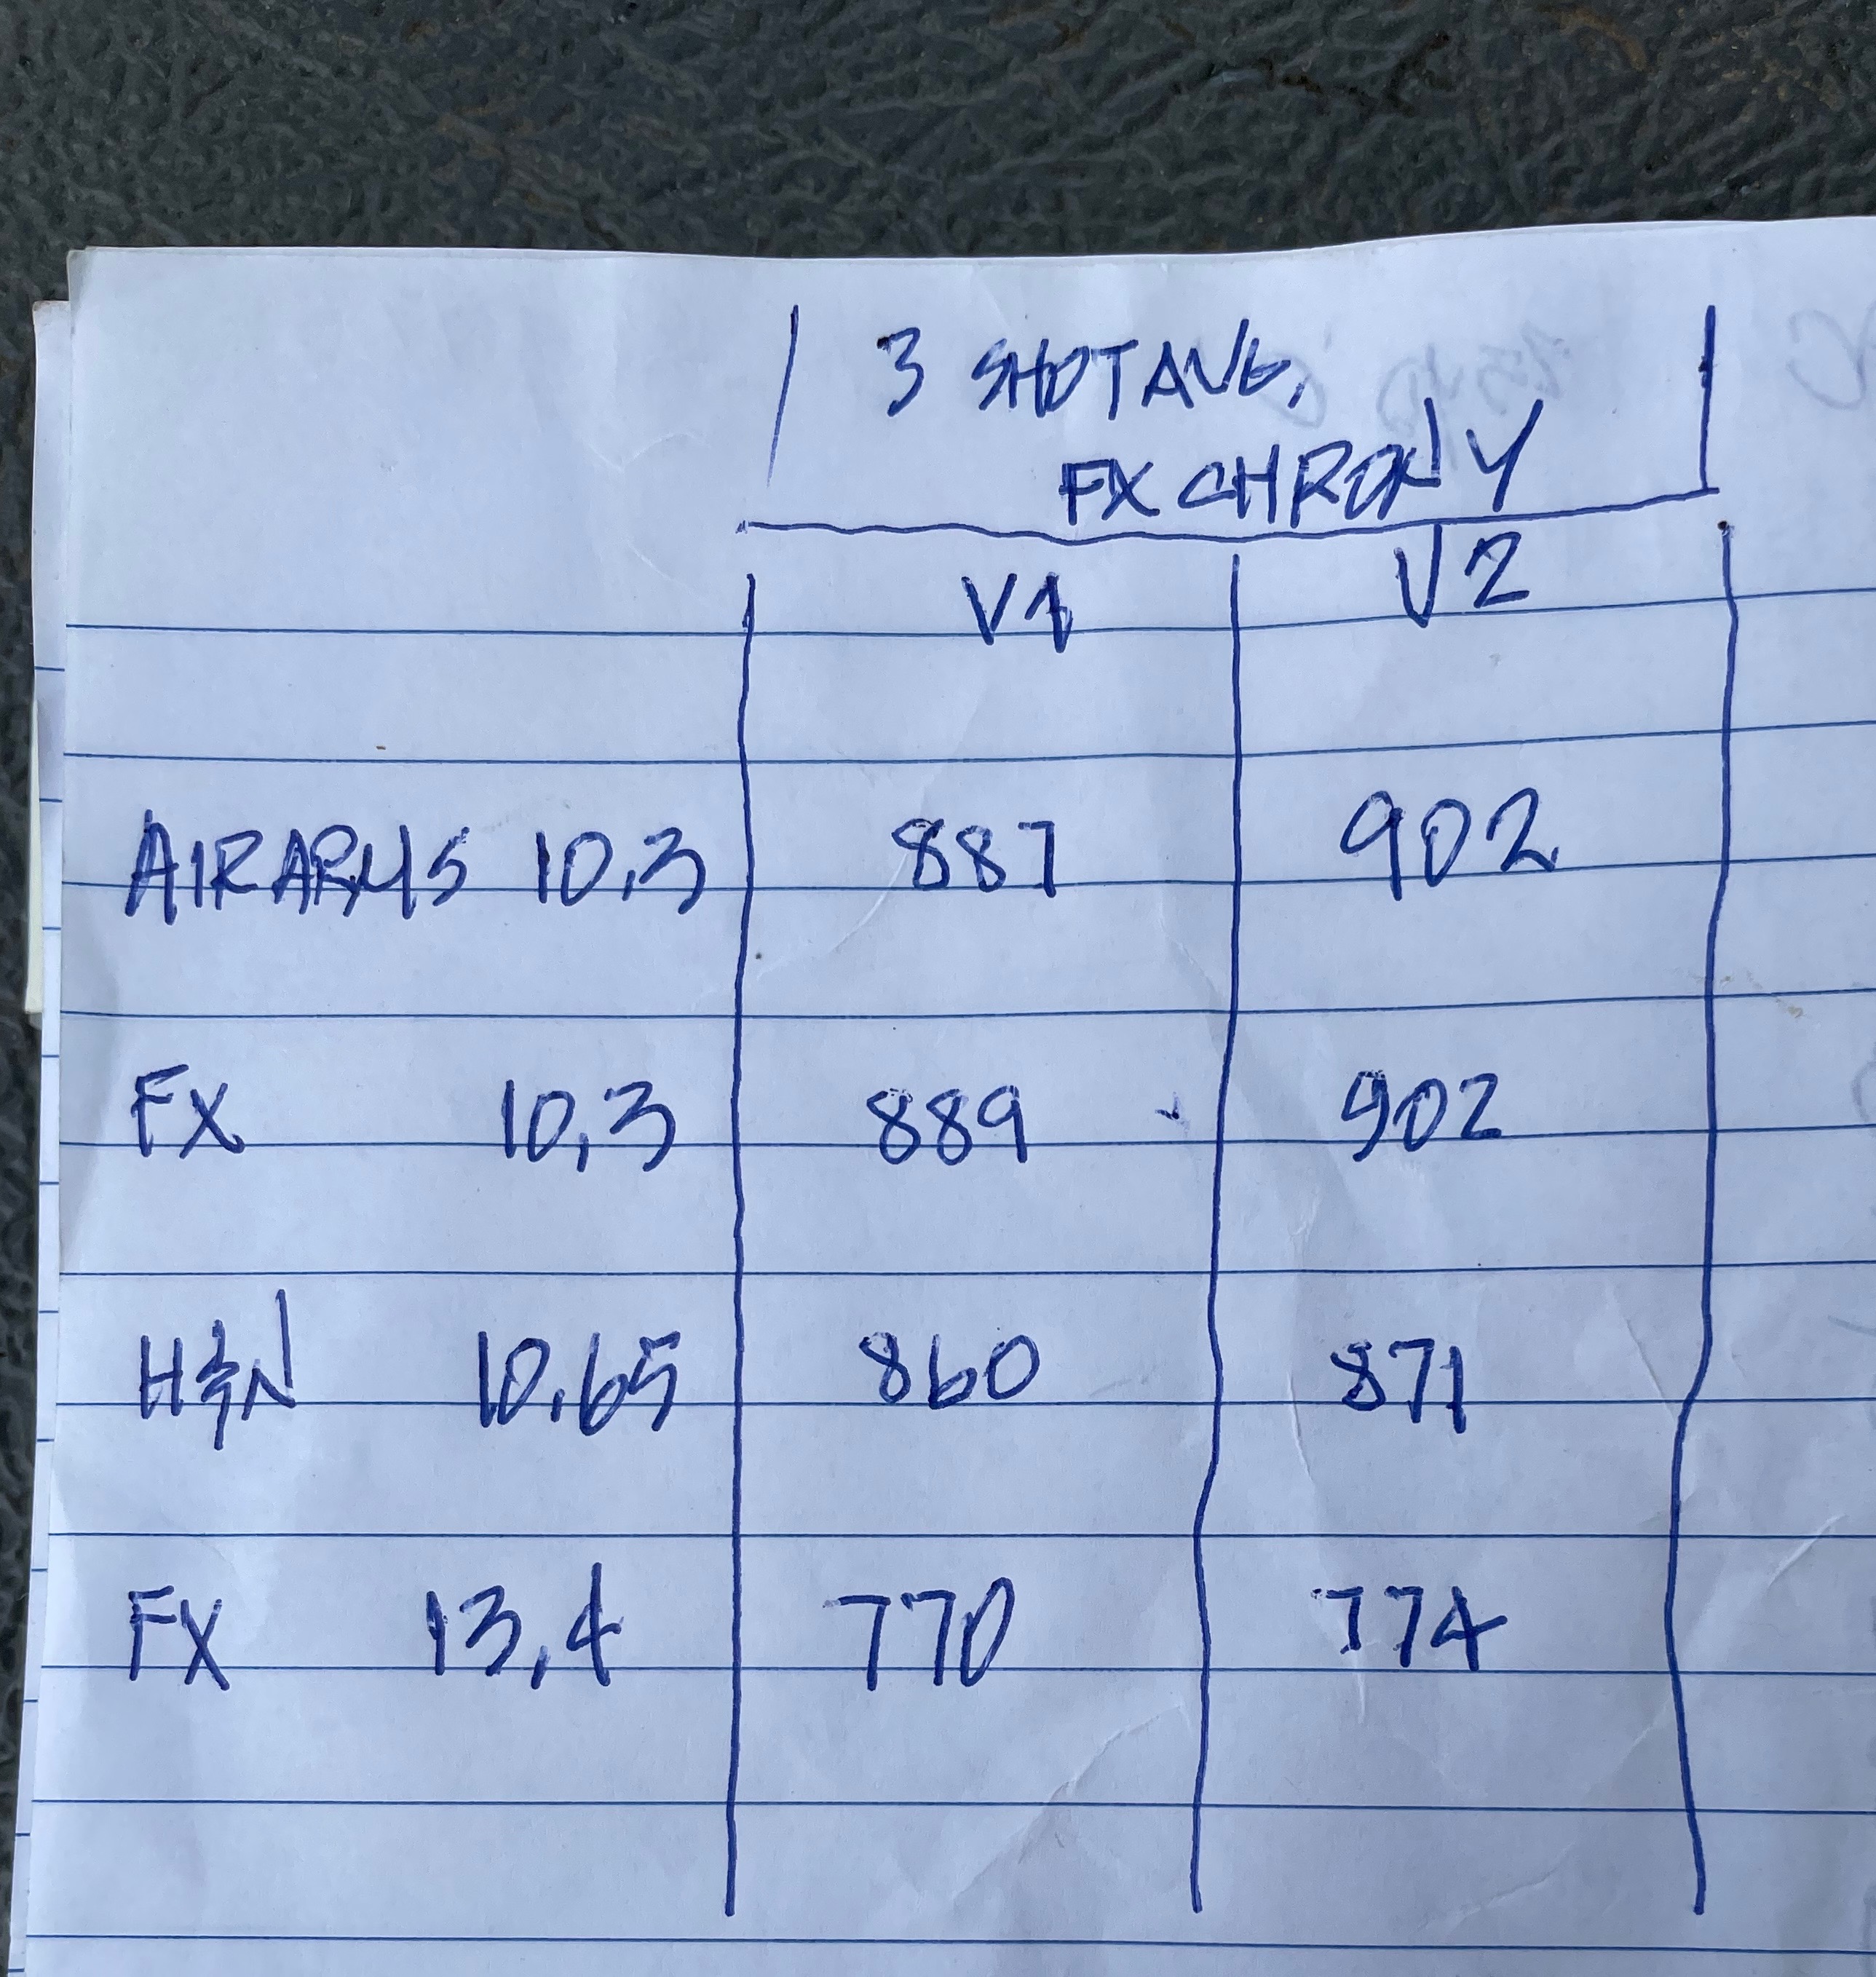 3 SHOT AVG.
FX CHRONY
V1 V2
AIRARMS 10.3 887 902
FX 10.3 889 902
H&N 10.65 860 871
FX 13.4 770 774